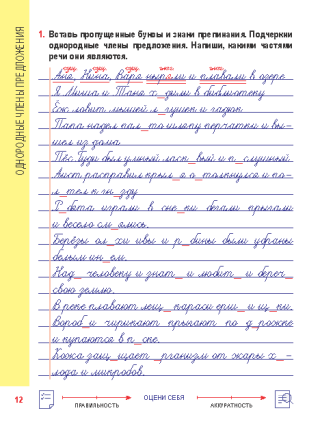 ОДНОРОДНЫЕ ЧЛЕНЫ ПРЕДЛОЖЕНИЯ
1. Вставь пропущенные буквы и знаки препинания. Подчеркни
однородные члены предложения. Напиши, какими частями
речи они являются.
Аня, Нина, Варя ныряли и плавали в озере.
Я Миша и Таня х_дили в библиотеку.
Ёж ловит мышей л_гушек и гадюк.
Папа надел пал_то шляпу перчатки и вы-
шел из дома.
Пёс Буди был умный ласк_вый и п_слушный.
Аист расправил крыл_я о_толкнулся и по-
л_тел к гн_зду.
Р_бята играли в сне_ки бегали прыгали
и весело см_ялись.
Берёзы ол_хи ивы и р_бины были убраны
белым ин_ем.
Над_ человеку и знат_ и любит_ и береч_
свою землю.
В реке плавают лещ_ караси ерш_ и щ_ки.
Вороб_и чирикают прыгают по д_рожке
и купаются в п_ске.
Кожа защ_щает _рганизм от жары х_-
лода и микробов.
12
ПРАВИЛЬНОСТЬ
ОЦЕНИ СЕБЯ
АККУРАТНОСТЬ